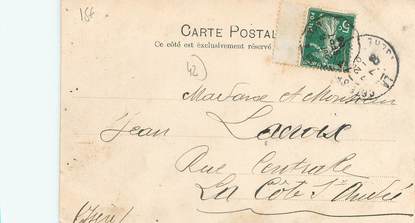 186
CARTE POSTAL
Ce côté est exclusivement réservé
42
Madame et Monsieur
Jean Lacroix
Rue Centrale
La Côte St André
(Isère)